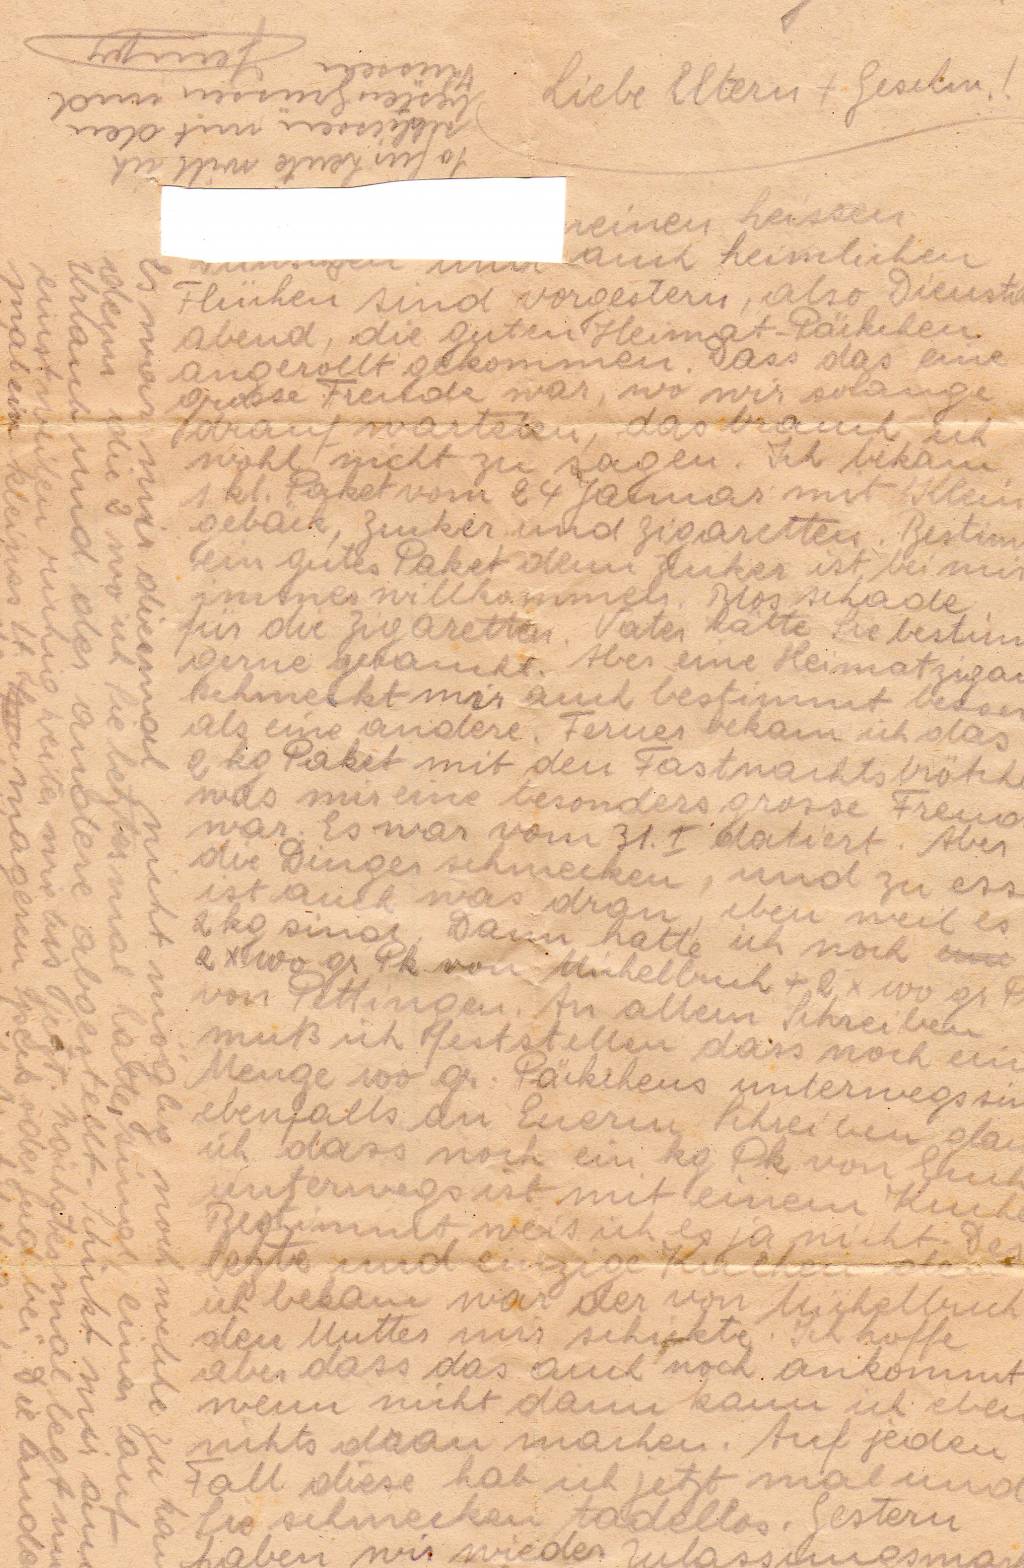 Liebe Eltern + Geschw.!
meinen heissen
wünschen und auch heimlichen
Flüchen sind vorgestern, also Dienstag
abend, die guten Heimat-Päckchen
angerollt gekommen. Dass das eine
grosse Freude war, wo wir solange
drauf warteten, das brauch ich
wohl nicht zu sagen. Ich bekam
1 kl. Paket vom 24 Januar mit Klein
gebäck, Zucker und Zigaretten. Bestim
ein gutes Paket denn Zucker ist bei mir
immer willkommen. Blos schade
für die Zigaretten. Vater hätte sie bestim
gerne geraucht. Aber eine Heimatzigar
schmeckt mir auch bestimmt besser
als eine andere. Ferner bekam ich das
2 kg Paket mit den Fastnachtsbrötch
was mir eine besonders grosse Freud
war. Es war vom 31. I datiert. Aber
die Dinger schmecken, und zu ess
ist auch was dran, eben weil es
2 kg sind. Dann hatte ich noch
2 x 100 gr Pk von Michelbuch + 2 x 100 gr P
von Pettingen. An allem Schreiben
muß ich feststellen dass noch ein
Menge 100 gr. Päckchens unterwegs sin
ebenfalls an Euerm Schreiben glau
ich dass noch ein kg Pk von Euch
unterwegs ist mit einem Kuche
Bestimmt weis ich es ja nicht. Der
letzte und einzige Kuchen den
ich bekam war der von Michelbuch
den Mutter mir schickte. Ich hoffe
aber dass das auch noch ankommt
wenn nicht dann kann ich eben
nichts dran machen. Auf jeden
Fall diese hab ich jetzt mal und
sie schmecken tadellos. Gestern
haben wir wieder Zulassungsmar
Es war mir diesmal nicht möglich noch welche zu
denn die 2 wo ich die letztes mal hatte, sind einer auf
Urlaub und der andere abgestellt. Schickt mir aus
einstweilen ruhig weiter was Ihr nächstes mal legt
mal ein kleines magern Speck oder bei. Die
So für heute will ich
schliessen mit den
besten Grüssen und
Küssen
Jempy